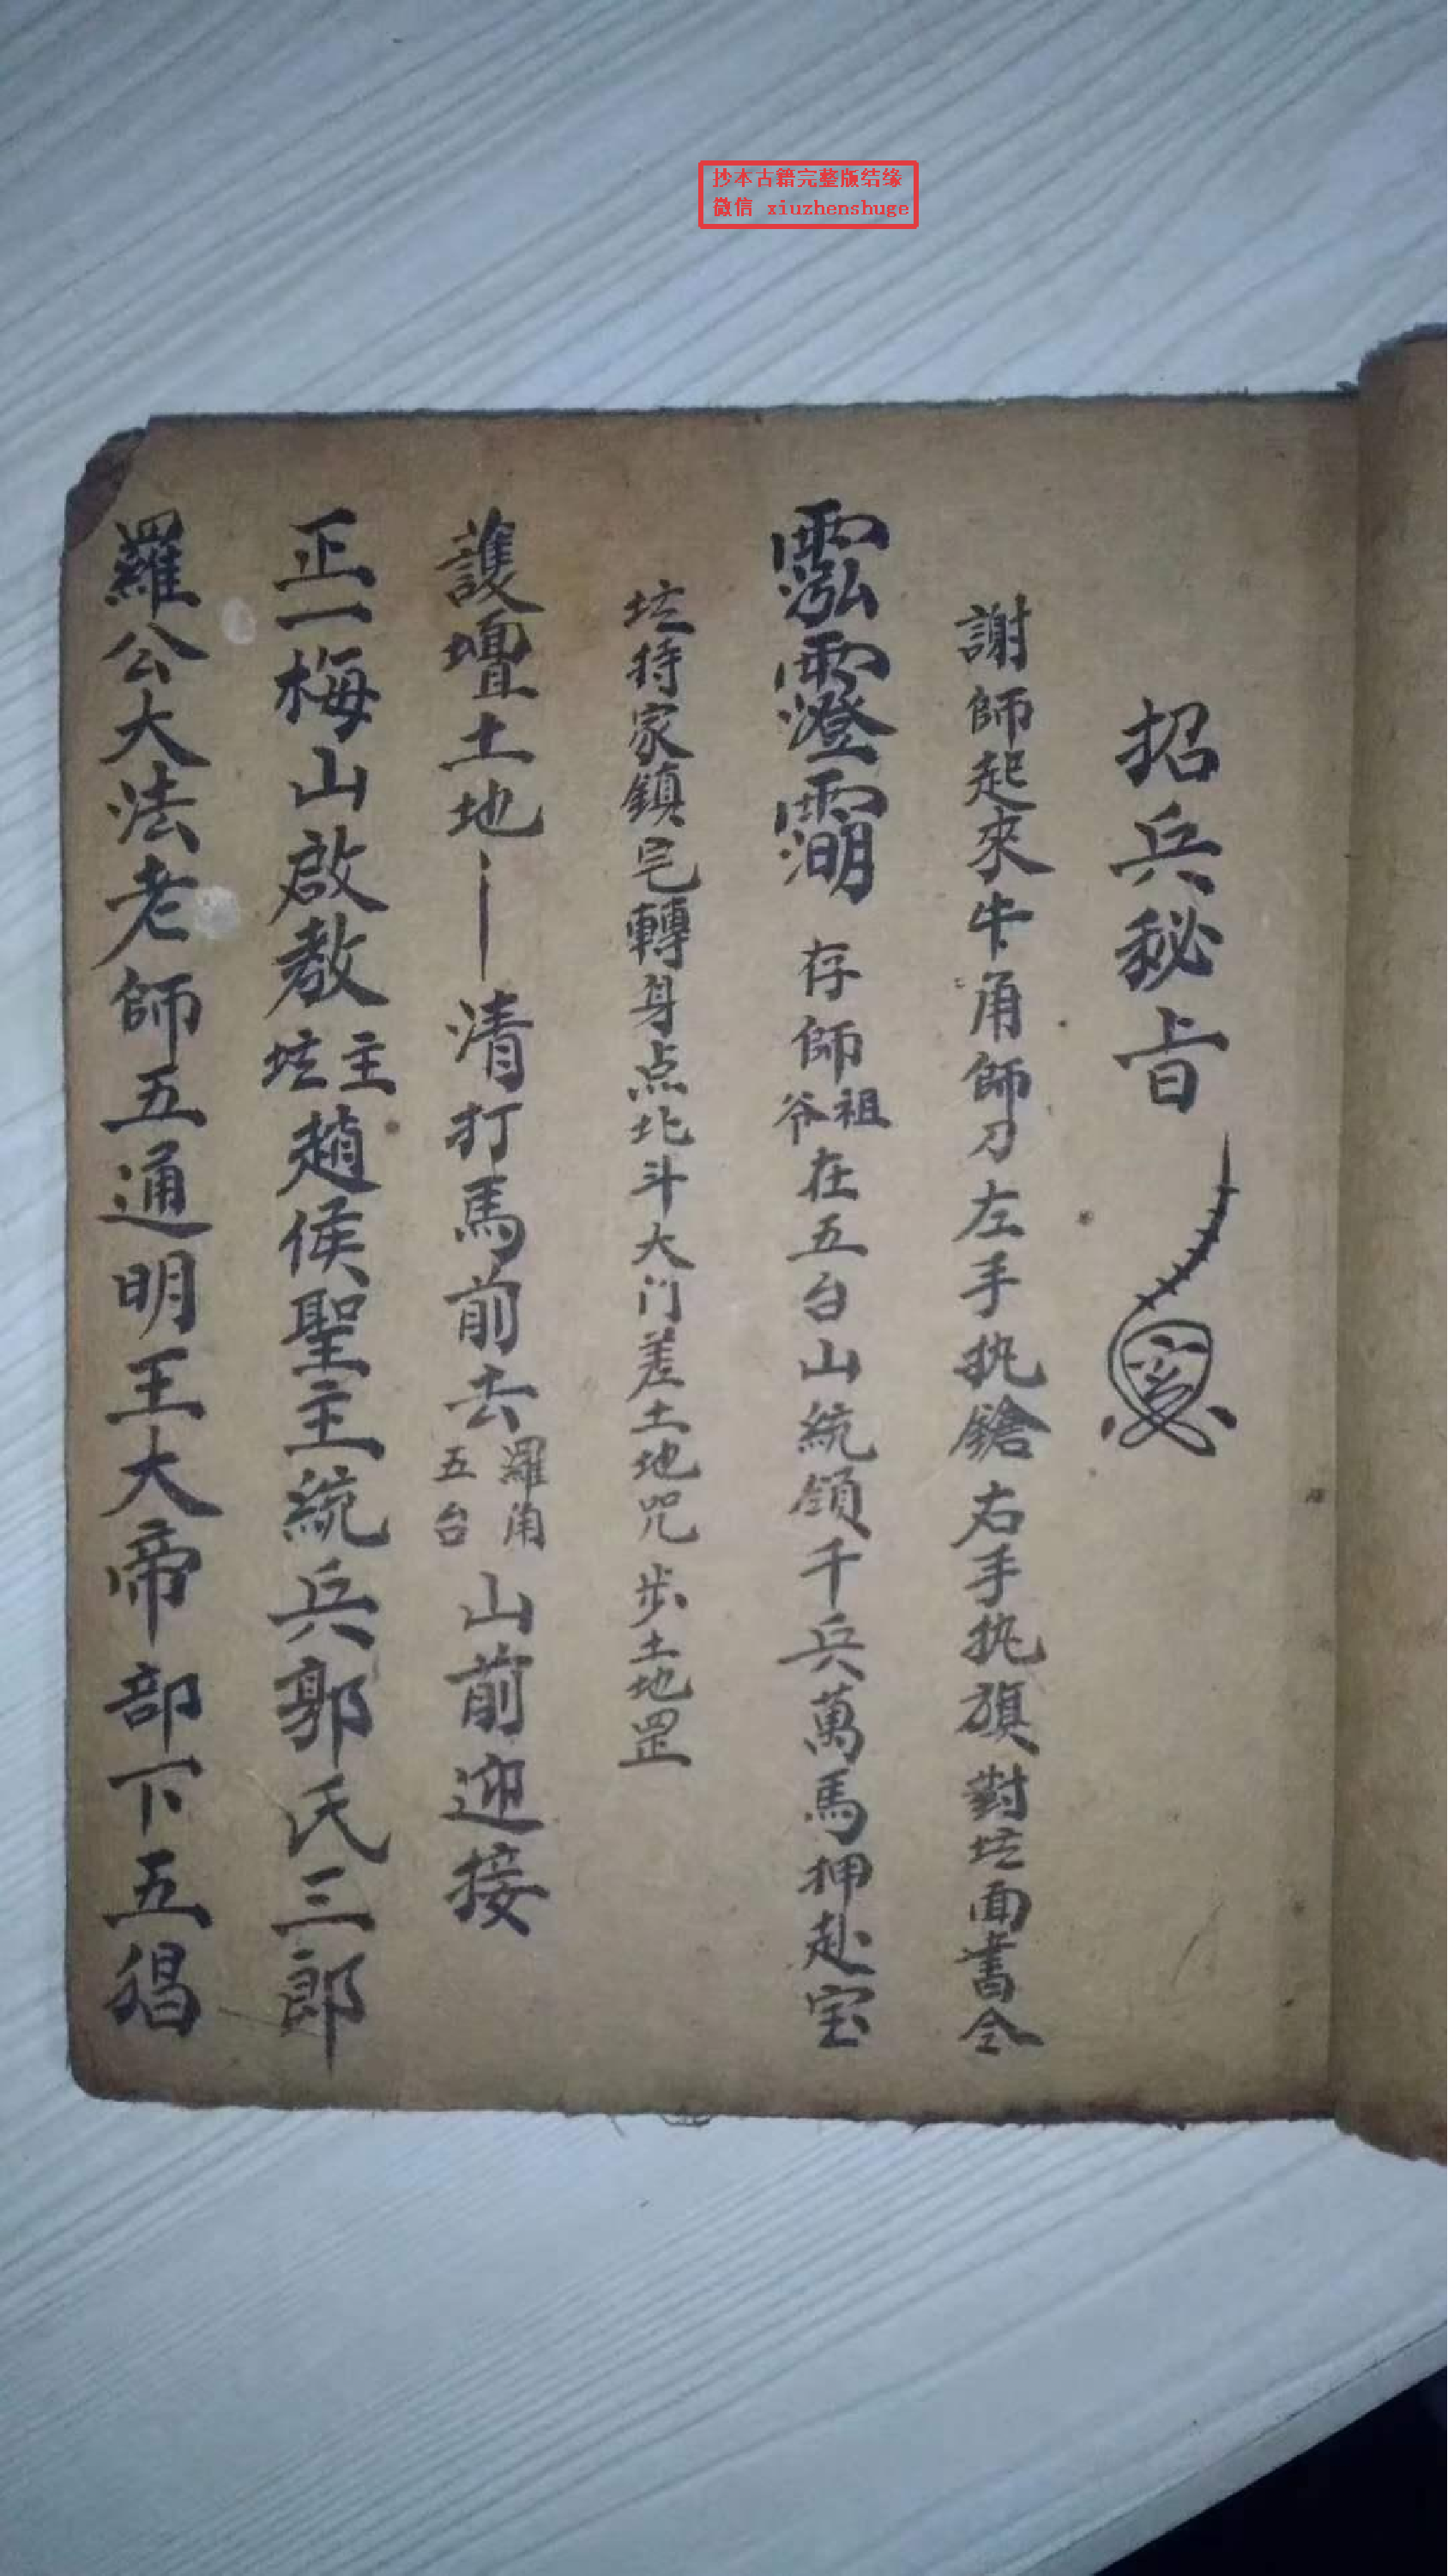 抄本古籍完整版结缘
微信 xiuzhenshuge
招兵秘旨
謝師起來牛角師刀左手执鎗右手执旗對坛面書仝
存師祖爷在五台山統領千兵萬馬押赴宝
坛持家鎮宅轉身点北斗大门差土地咒步土地罡
護壇土地丨清打馬前去羅角五台山前迎接
正一梅山啟教主坛趙侯聖主統兵郭氏三郎
羅公大法老師五通明王大帝部下五猖